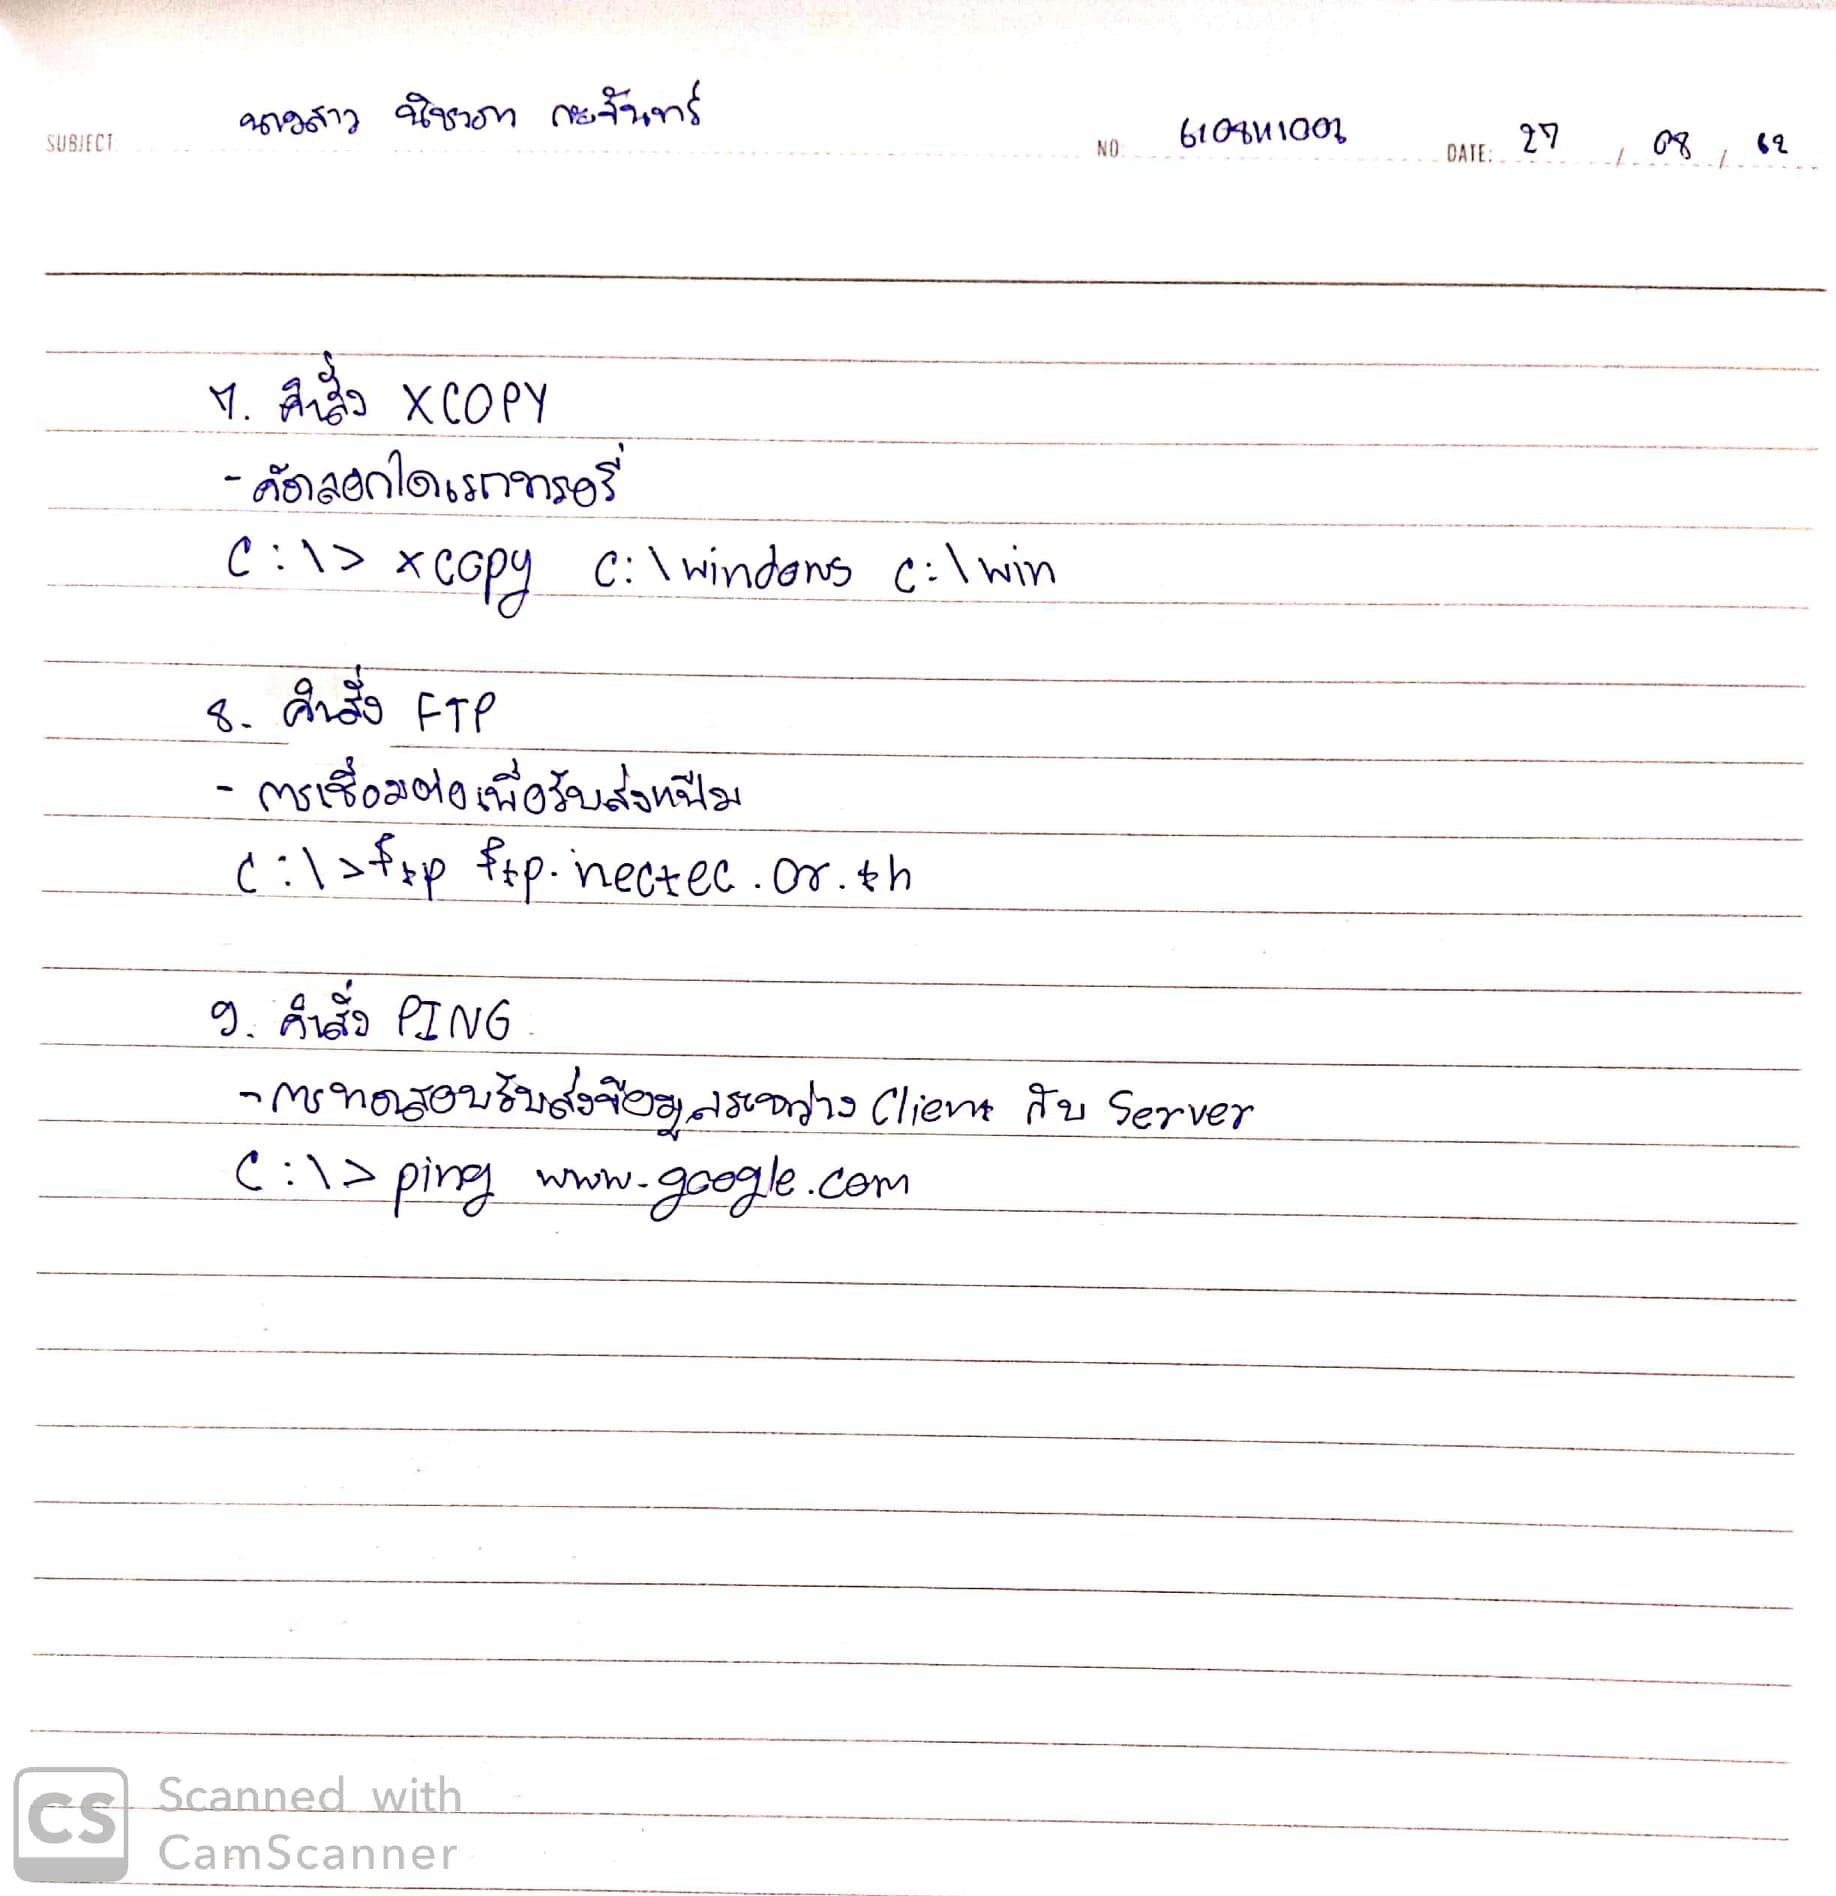 SUBJECT นางสาว นิชาภา กะจันทร์ NO. DATE: 27 / 08 / 62
7. คำสั่ง XCOPY
- คัดลอกไดเรกทอรี่
C:\> xcopy c:\windows c:\win
8. คำสั่ง FTP
- การเชื่อมต่อเพื่อรับส่งแฟ้ม
C:\>ftp ftp.nectec.or.th
9. คำสั่ง PING
- การทดสอบรับส่งข้อมูลระหว่าง Client กับ Server
C:\> ping www.google.com
CS Scanned with
CamScanner